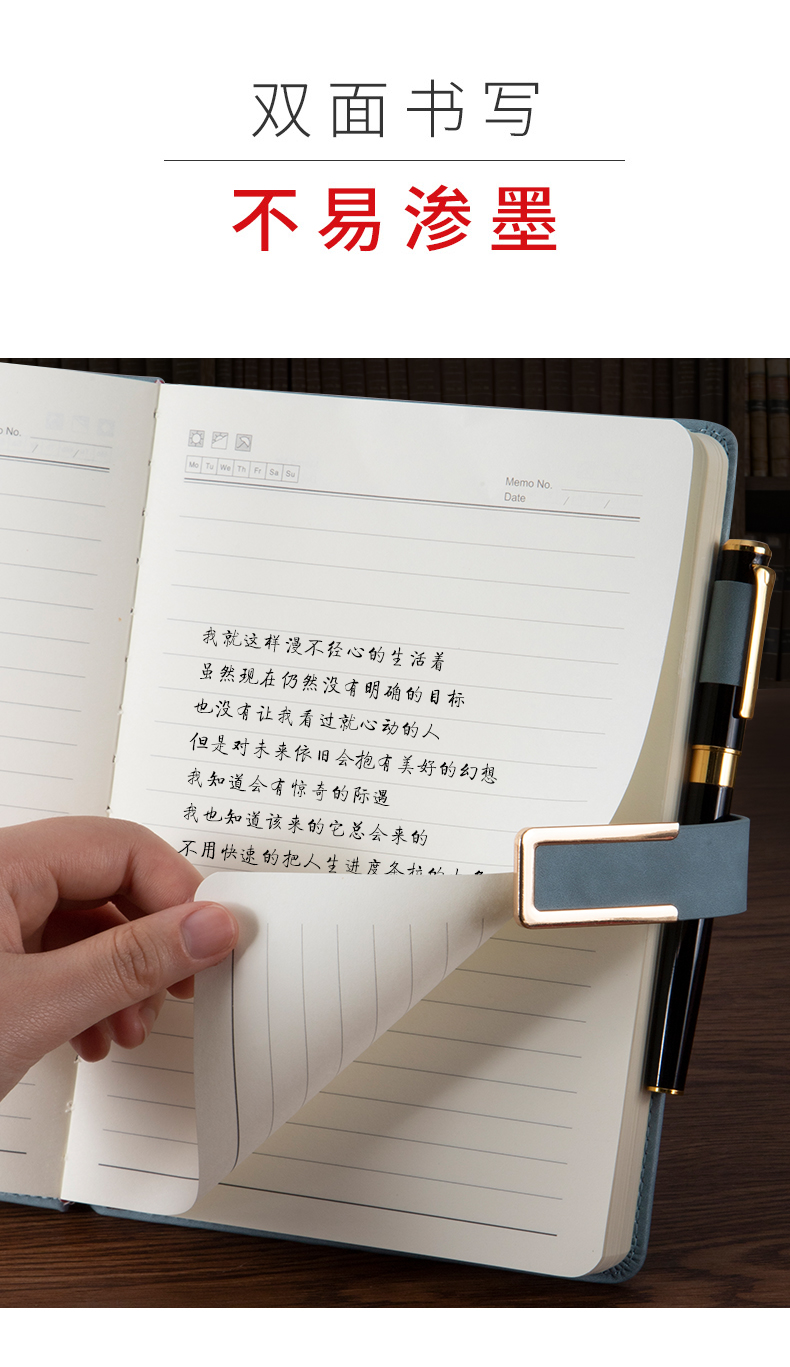 双面书写
不易渗墨
o No.
Mo Tu We Th Fr Sa Su
Memo No.
Date / /
我就这样漫不经心的生活着
虽然现在仍然没有明确的目标
也没有让我看过就心动的人
但是对未来依旧会抱有美好的幻想
我知道会有惊奇的际遇
我也知道该来的它总会来的
不用快速的把人生进度条拉的